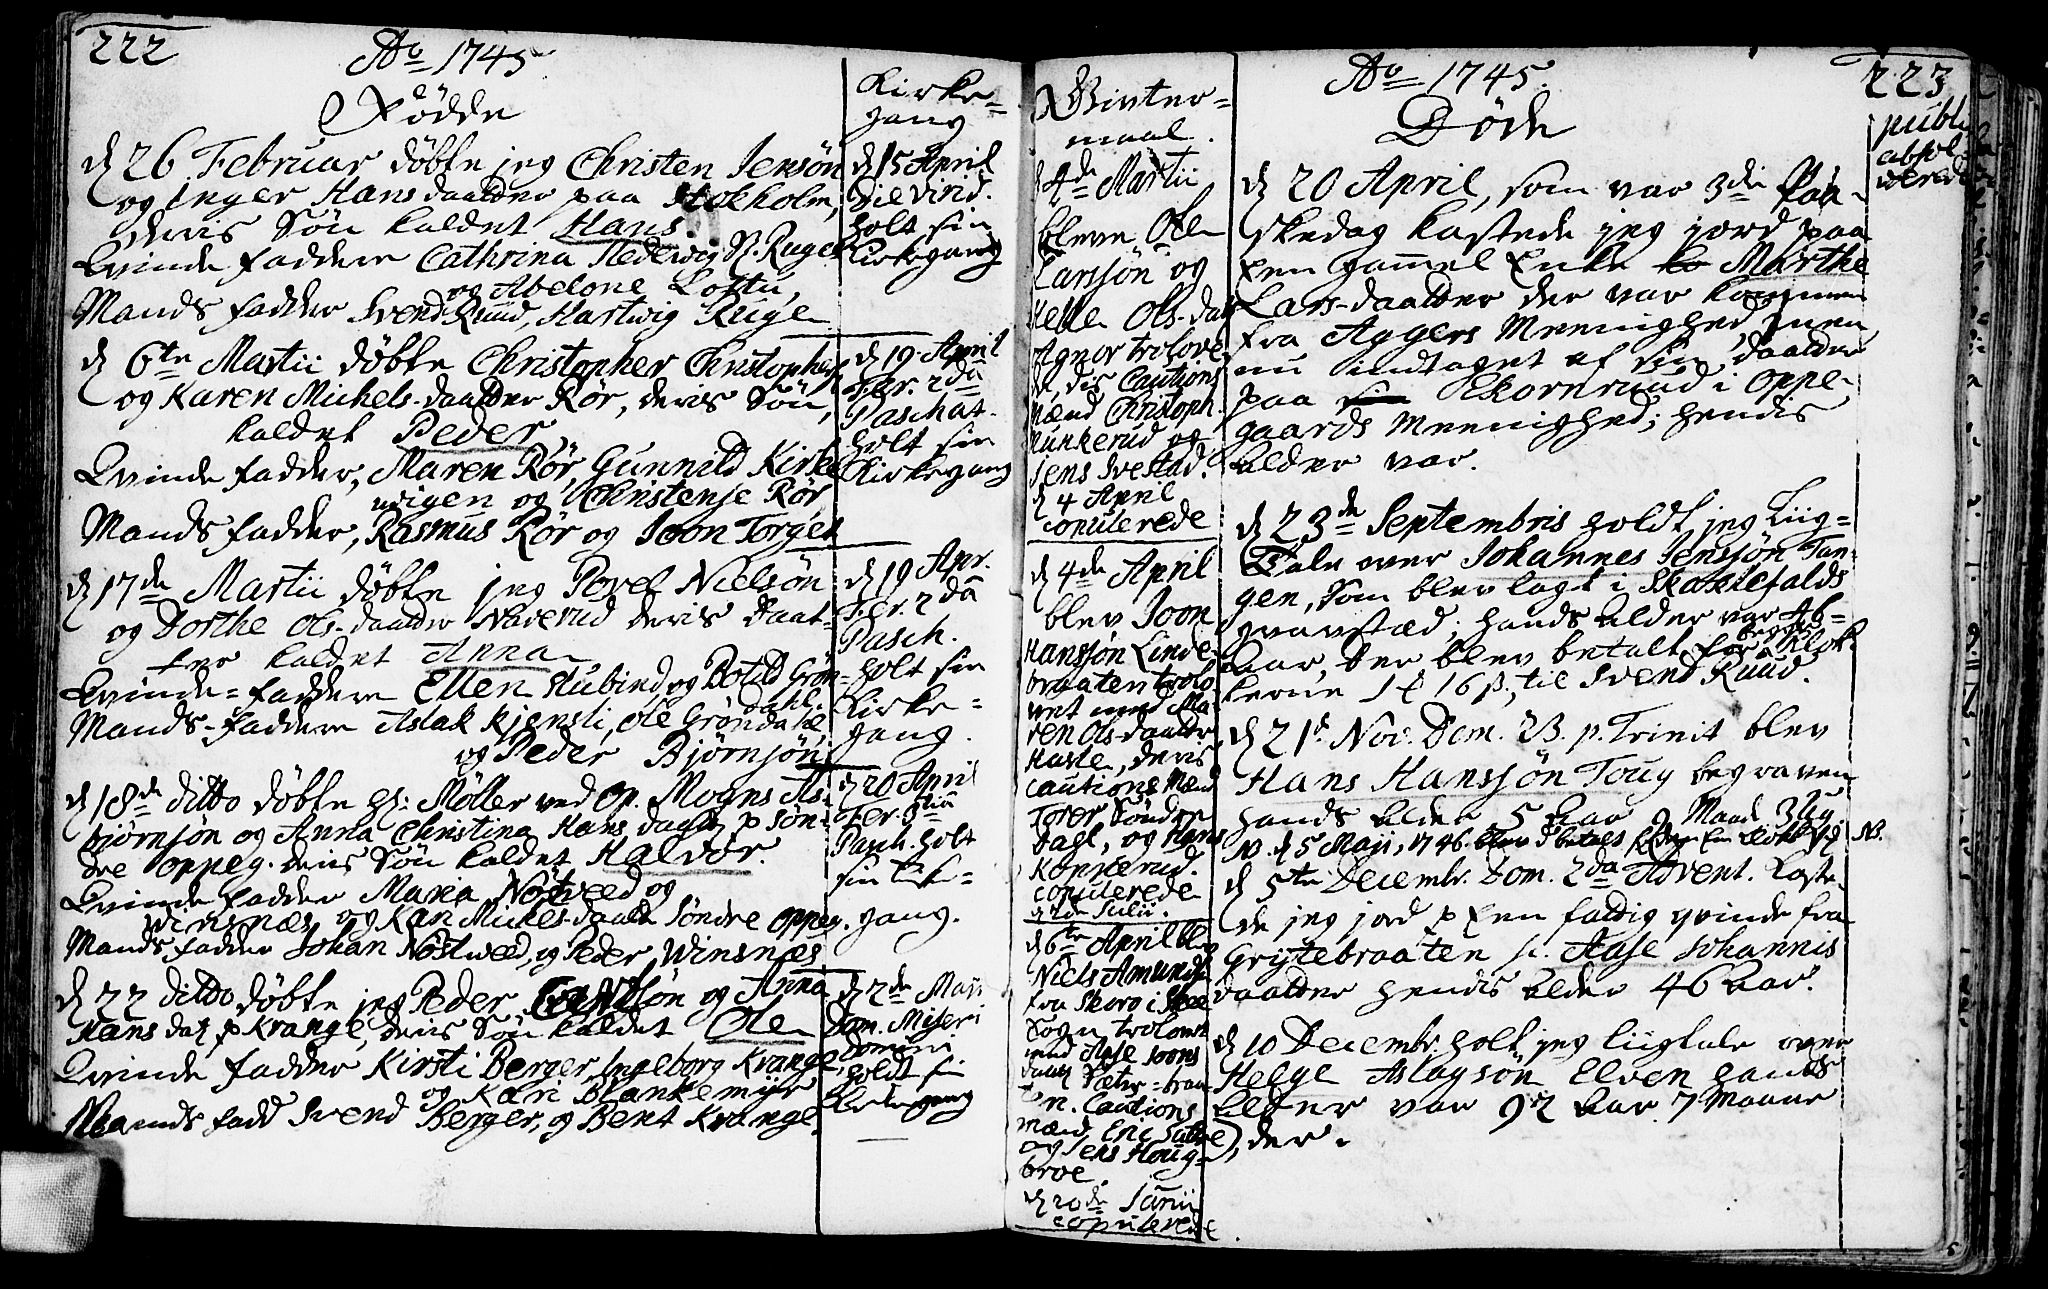 222
Ao 1745
Fødde
d 26 Februar døbte jeg Christen Jensøn
og Inger Hans daatter paa Stokholm,
deris Søn kaldet Hans.
Qvinde faddere Cathrina Hedewig Sl. Ruges
og Abelone Loftu,
Mands fadder Svend Ruud, Hartwig Ruge
d 6te Martii døbte Christopher Christophers
og Karen Michels-daatter Rör, deris Søn,
kaldet Peder
Qvinde fadder, Maren Rör, Gunnild Kirke
wigen og Christense Rör,
Mands fadder, Rasmus Rör og Joon Torget
d 17de Martii døbte jeg Povel Nielsøn
og Dorthe Ols-daatter Naverud deris Daat-
ter kaldet Anna
Qvinde-faddere Ellen Stubind, og Botild Grön-
dahl.
Mands-faddere Aslak Kjensli, Ole Gröndahl,
og Peder Bjørnsøn
d 18de ditto døbte Hr: Möller ved Op. Mogns As-
bjørnsøn og Anna Christina Hans dagtr p Søn-
dre Oppeg. deris Søn kaldet Halvor.
Qvinde fadder Maria Nøstveed og
Winsnæs og Kari Mickels-daatter Søndre Oppeg.
Mands fadder Johan Nøstweed, og Peder Winsnæs
d 22 ditto døbte jeg Peder søn og Anna
Hans dat p Krange, deris Søn kaldet Ole
Qvinde fadder Kirsti Berger, Ingeborg Krange
og Kari Blankemyr
Mands fadd Svend Berger, og Bent Krange.
Kirke-
gang
d 15 April
Die Virid.
holt sin
Kirkegang
d 19 April
Fer. 2da
Paschat.
holt sin
Kirkegang
d 19 Apr.
Fer. 2da
Pasch.
holt sin
Kirke-
gang.
d 20 April
Fer. 3tia
Pasch. holt
sin Ke-
gang.
d 2de Maji
Dom. Miseri
Domini
holdt sin
Kirkegang
Winter-
maal.
d 4de Martii
bleve Ole
Larssøn og
Helle Ols-dat
Agnor trolove
de, dis Cautions
Mænd Christoph.
Munkerud og
Jens Svestad.
d 4 April
copulerede
d 4de April
blev Joon
Hanssøn Linde-
braaten trolo
vet med Ma-
ren Ols-daatter
Hasle, deris
Cautions Mænd
Torer Søndre
Dahl, og Hans
Konterud.
copulerede
d 2de Julii.
d 6te April blev
Niels Amunds.
fra Skoro i Skee
Sogn trolovet
med Aase Joons
daatt Sæter-braa
ten. Cautions
mænd Eric Sutre
og Jens Houg-
broe
d 20de Junii
copulerede.
Ao 1745.
Døde
223
publ.
absol
verede
d 20 April, som var 3die Paa-
skedag kastede jeg jord paa
Een gammel Enke Marthe
Lars-daatter der var kommen
fra Aggers Meenighed, men
nu indtaget af sin daatter
paa Ekornrud i Oppe-
gaards Meenighed; hendis
Alder var.
d 23de Septembris holdt jeg Liig-
Tale over Johannes Jenssøn Tan-
gen, Som blev lagt i Skokkefalds
gravstæd; hands Alder var 46-
Aar, Der blev betalt for begge Klok-
kerne 1 t 16 ß, til Svend Ruud.
d 21de Nov. Dom. 23. p. Trinit blev
Hans Hanssøn Toug begraven
hands Alder 5 Aar 9 Maan. 3 Ug.
d 15 Maji, 1746 blev betalt NB.
d 5te Decembr. Dom. 2da Advent. kaste-
de jeg jord p Een fattig qvinde fra
Grytebraaten n. Aase Johannis
daatter hendis Alder 46 Aar.
d 10 Decembr. holt jeg liigtale over
Helge Aslagsøn Elven hands
Alder var 92 Aar 7 Maane
der.